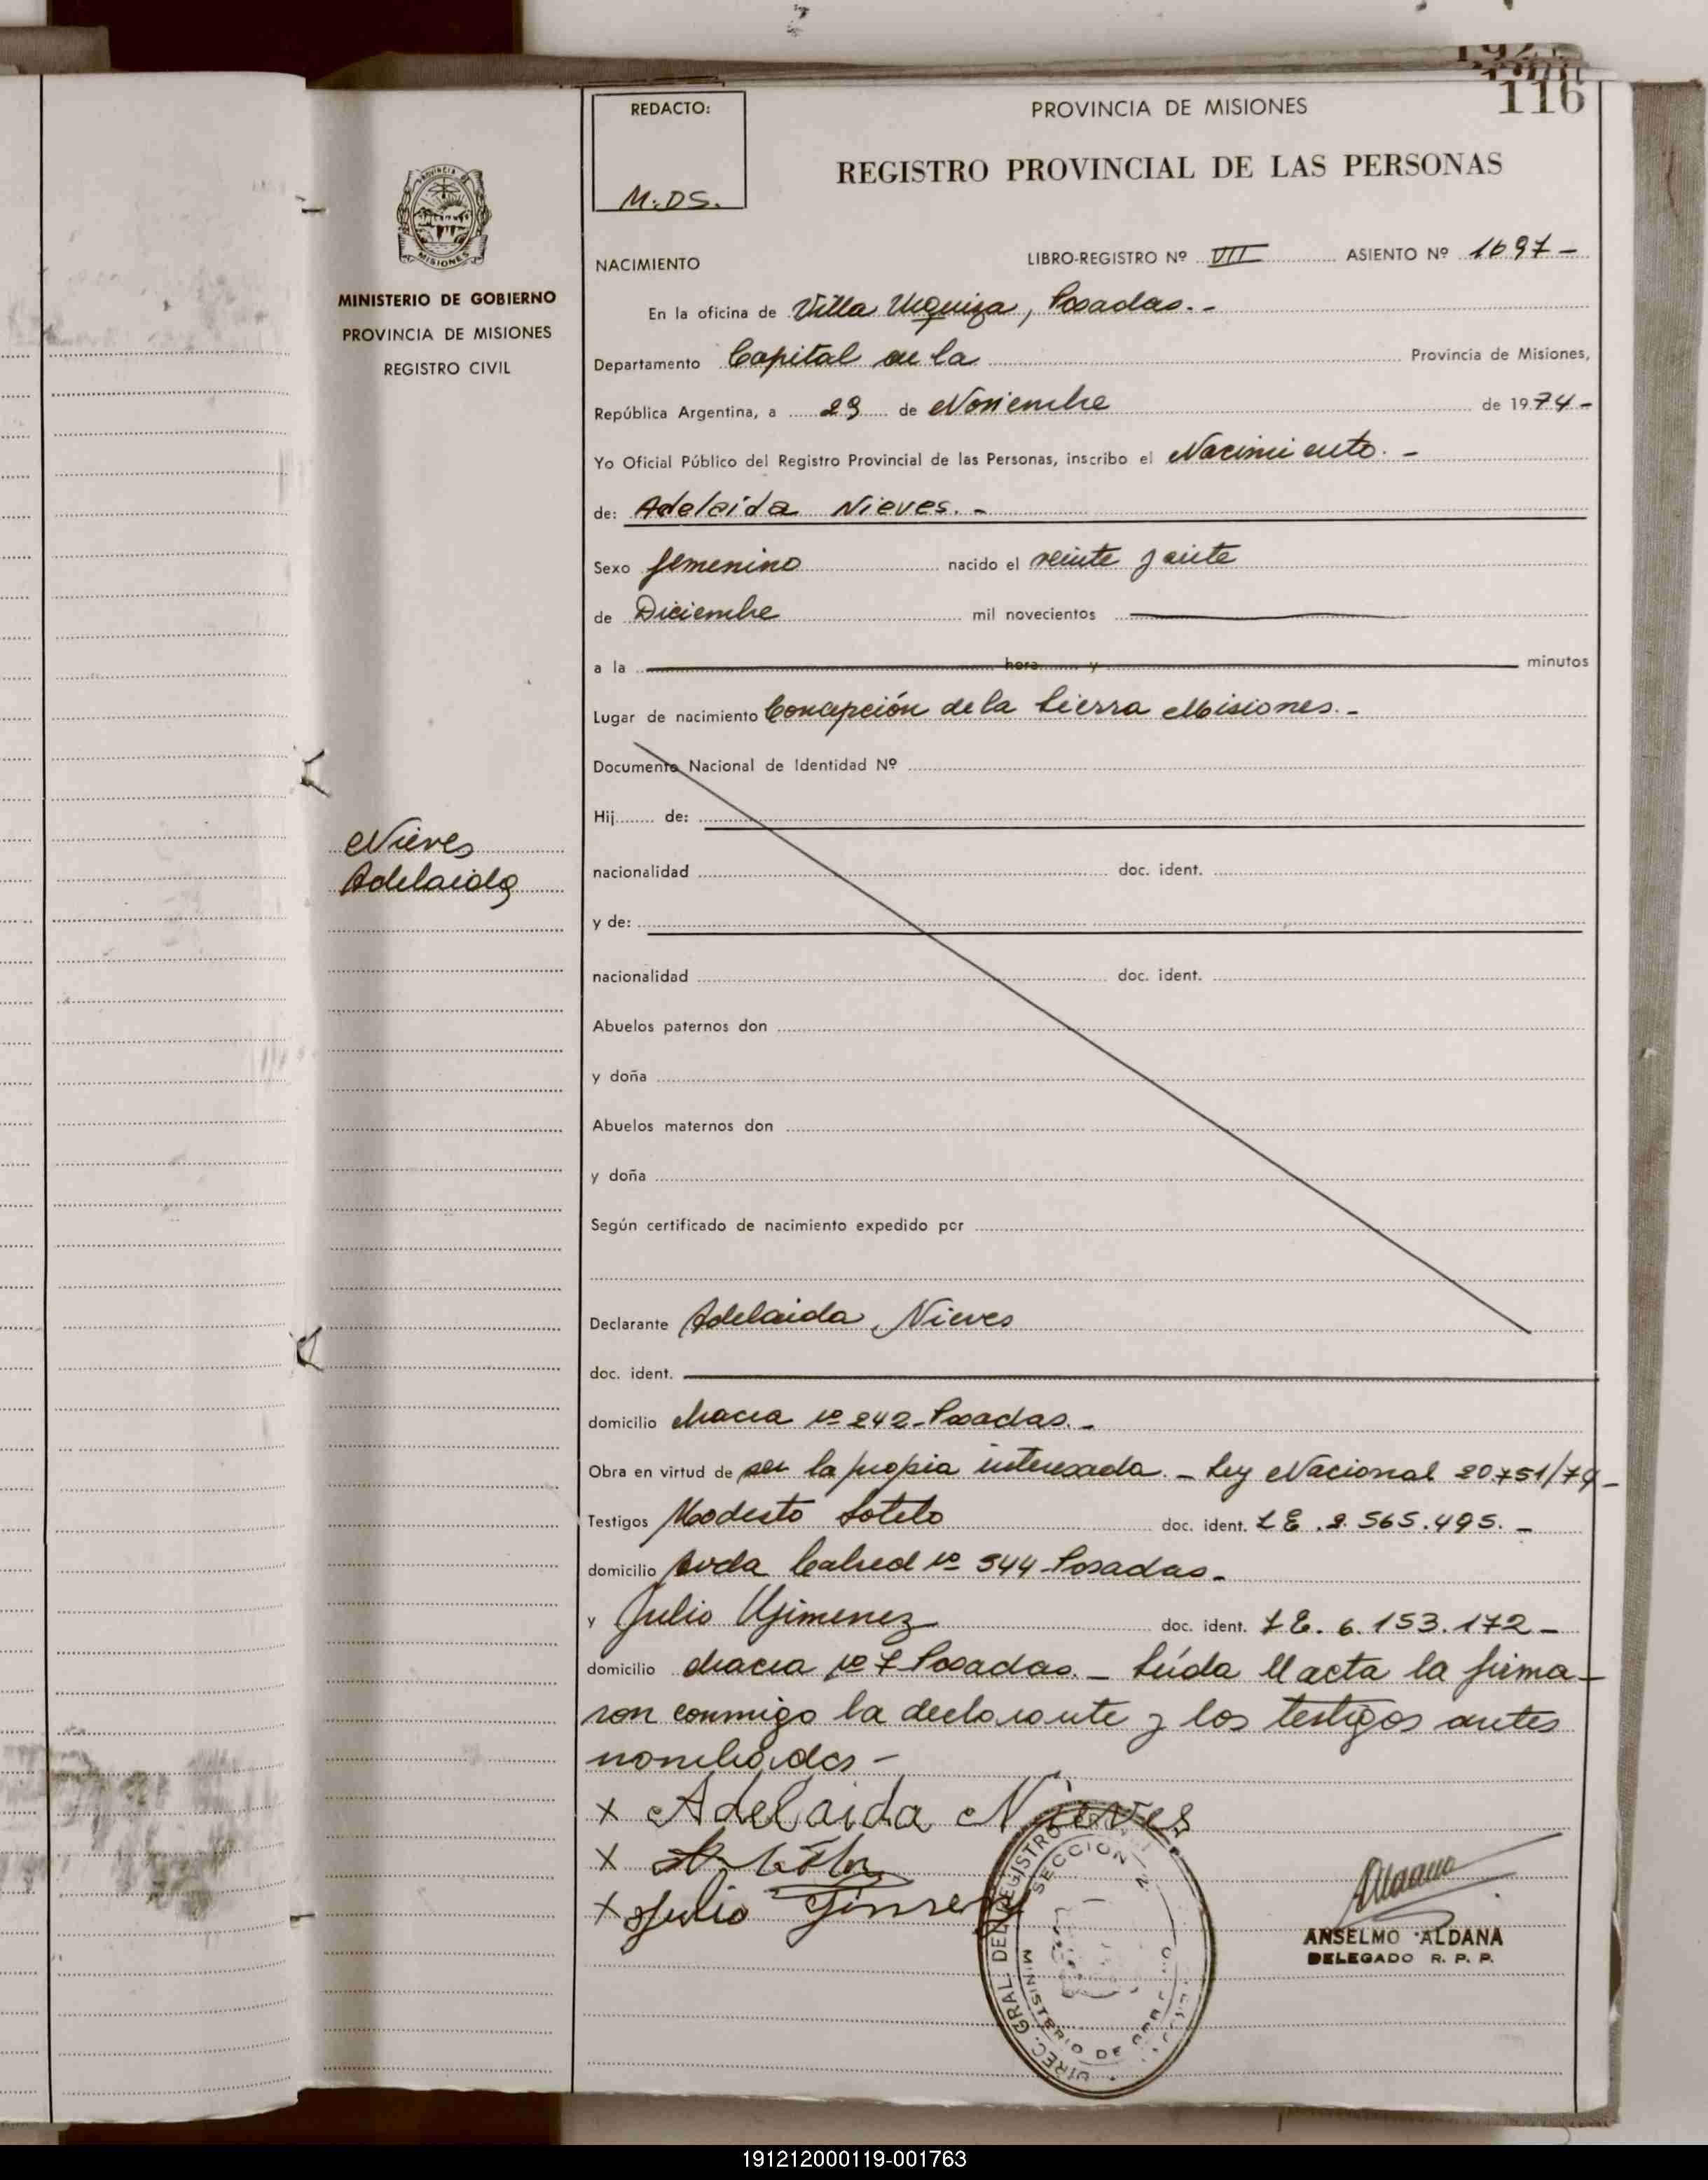 116
REDACTO:
M. DS.
PROVINCIA DE MISIONES
REGISTRO PROVINCIAL DE LAS PERSONAS
PROVINCIA DE
MISIONES
MINISTERIO DE GOBIERNO
PROVINCIA DE MISIONES
REGISTRO CIVIL
Nieves
Adelaida
NACIMIENTO LIBRO-REGISTRO Nº VII ASIENTO Nº 1697-
En la oficina de Villa Urquiza, Posadas.-
Departamento Capital en la Provincia de Misiones,
República Argentina, a 29 de Noviembre de 1974-
Yo Oficial Público del Registro Provincial de las Personas, inscribo el Nacimiento.-
de: Adelaida Nieves.-
Sexo femenino nacido el veinte y siete
de Diciembre mil novecientos
a la hora y minutos
Lugar de nacimiento Concepción de la Sierra Misiones.-
Documento Nacional de Identidad Nº
Hij de:
nacionalidad doc. ident.
y de:
nacionalidad doc. ident.
Abuelos paternos don
y doña
Abuelos maternos don
y doña
Según certificado de nacimiento expedido por
Declarante Adelaida Nieves
doc. ident.
domicilio chacra nº 242-Posadas.-
Obra en virtud de ser la propia interesada.- Ley Nacional 20751/74-
Testigos Modesto Sotelo doc. ident. LE. 2.565.495.-
domicilio Avda nº 544-Posadas.-
y Julio Gimenez doc. ident. LE. 6.153.172-
domicilio chacra nº 7 Posadas.- Leída el acta la firma-
ron conmigo la declarante y los testigos antes
nombrados-
x Adelaida Nieves
x
x Julio Gimenez
DIREC. GRAL DEL REGISTRO
SECCION
MINISTERIO DE
ANSELMO ALDANA
DELEGADO R. P. P.
191212000119-001763